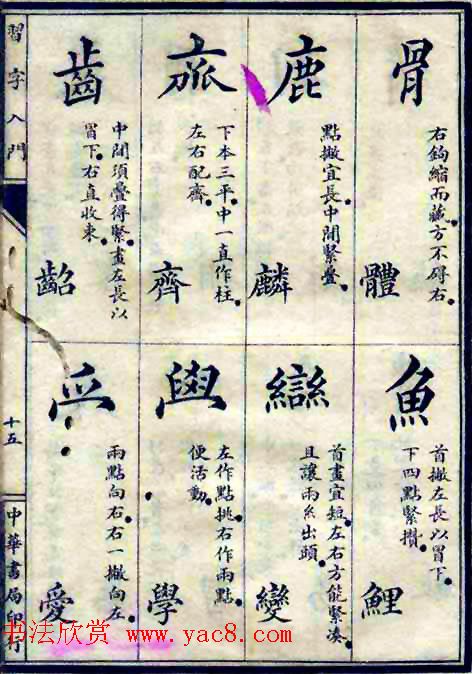 骨
右鉤縮而藏方不碍右
體
鹿
點撇宜長中間緊疊
麟
下本三平中一直作柱
左右配齊
齊
齒
中間須疊得緊畫左長以
冒下右直收束
齠
魚
首撇左長以冒下
下四點緊攢
鯉
䜌
首畫宜短左右方能緊湊
且讓兩糸出頭
變
左作點挑右作兩點
便活動
學
兩點向右右一撇向左
愛
習字入門
十五
中華書局印行
书法欣赏 www.yac8.com